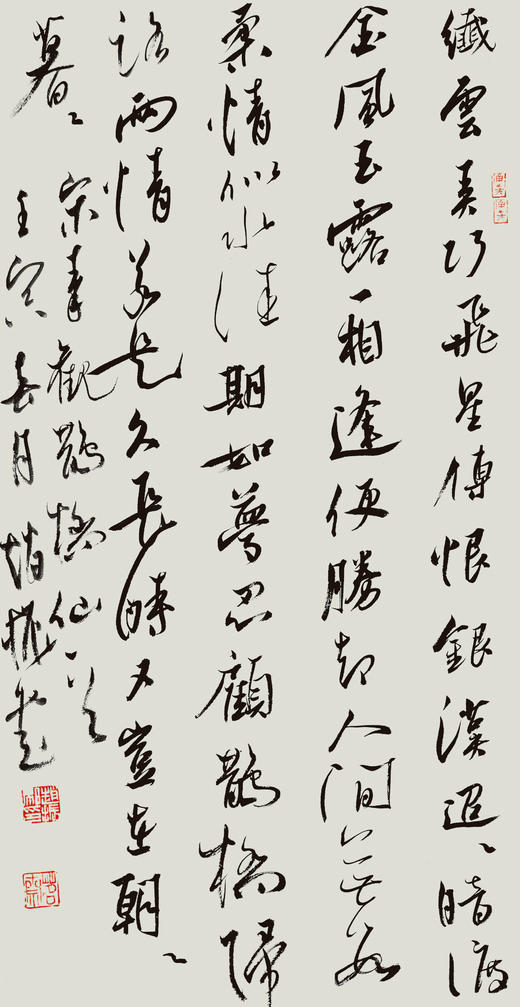 纖雲弄巧飛星傳恨銀漢迢〻暗渡
金風玉露一相逢便勝却人間無數
柔情似水佳期如夢忍顧鵲橋歸
路兩情若是久長時又豈在朝〻
暮〻
宋秦觀鵲橋仙一首
壬寅春月趙振